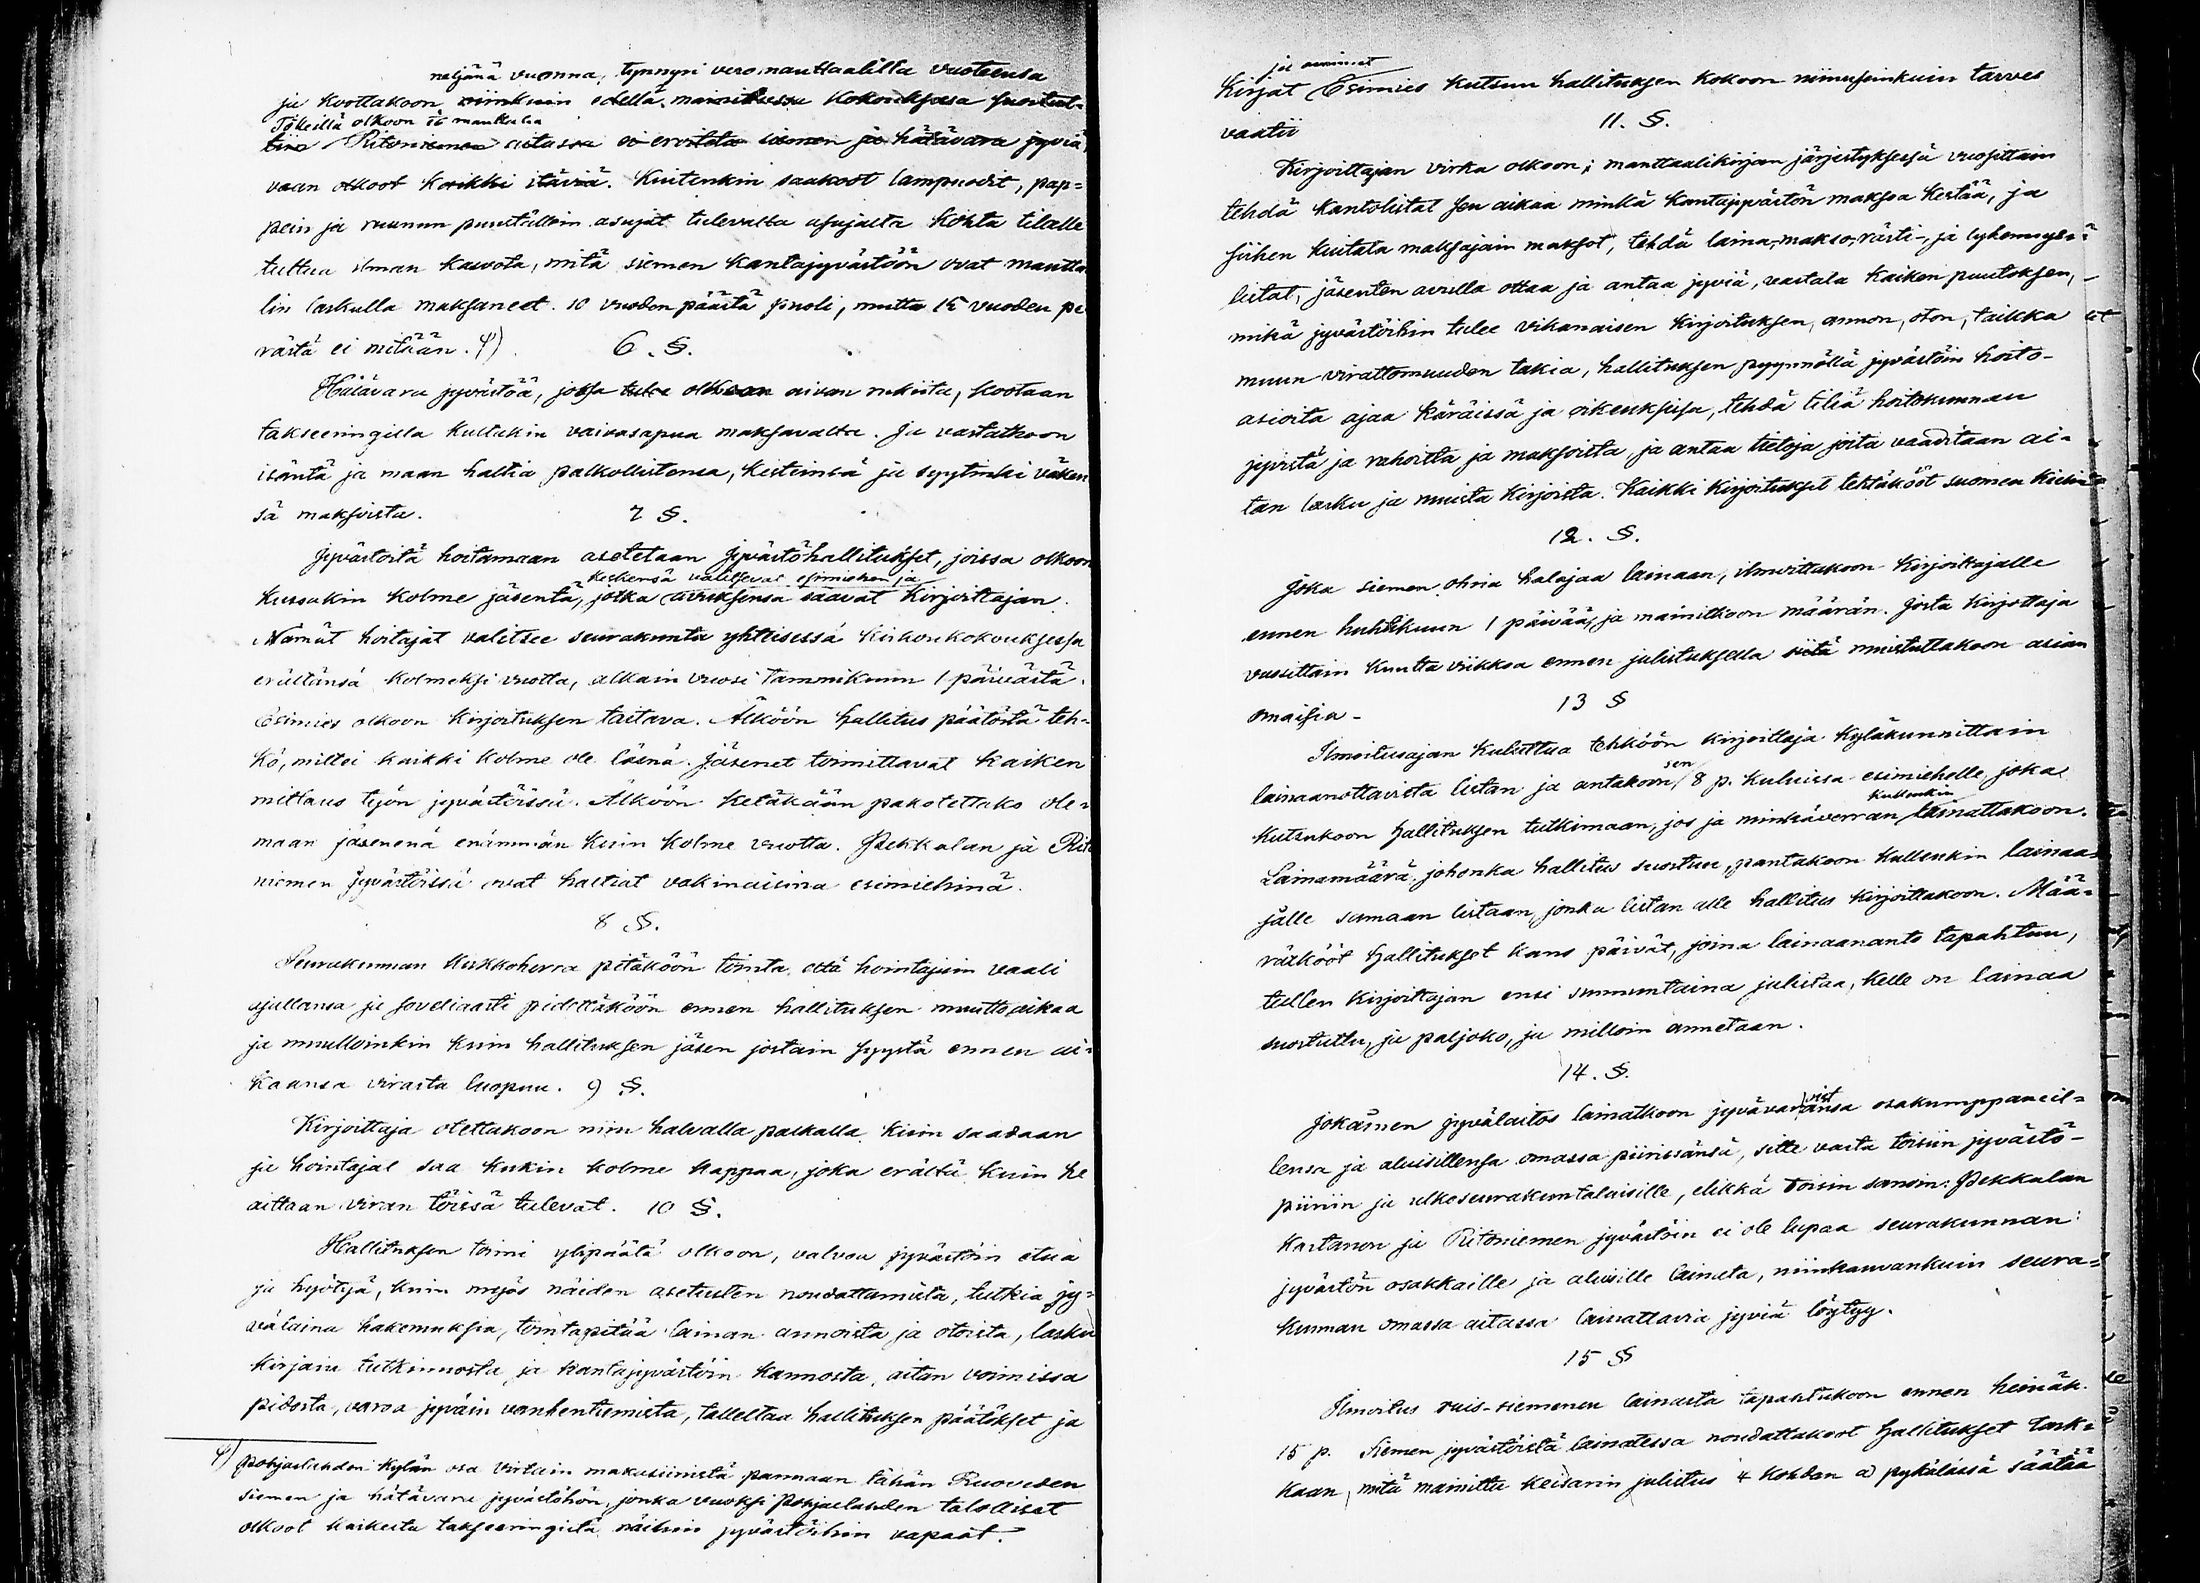 neljänä vuonna, tynnyri veromanttaalilta vuoteensa
ja koottakoon niinkuin edellä mainitussa kokouksessa suostut-
Tiloilla olkoon manttalia
tiin Ritoniemen aitassa ei eroiteta siemen ja hätävara jyviä,
vaan olkoot kaikki itäviä. Kuitenkin saakoot lampuodit, pap-
pein ja ruunun puustillein asujat tulevalta asujalta kohta tilalle
tultua ilman kasvota, mitä siemen kantajyvästöön ovat mantta
lin laskulla maksaneet. 10 vuoden päästä puoli, mutta 15 vuoden pe
rästä ei mitään. 4) 6. §.
Hätävara jyvästöä, jossa tulee olkoon aivan rukiita, kootaan
takseeringilla kultakin vaivasapua maksavalta. Ja vastatkoon
isäntä ja maan haltia palkollistensa, kestiensä ja syytinki väken
sä maksoista. 7 §.
Jyvästöitä hoitamaan asetetaan Jyvästöhallitukset, joissa olkoon
keskensä valitsevat esimiehen ja
kussakin kolme jäsentä, jotka avuksensa saavat Kirjoittajan.
Nämät hoitajat valitsee seurakunta yhteisessä kirkonkokouksessa
erältänsä kolmeksi vuotta, alkain vuosi Tammikuun 1 päivästä.
Esimies olkoon kirjoituksen taitava. Älköön hallitus päätöstä teh-
kö, milloi kaikki kolme ole läsnä. Jäsenet toimittavat kaiken
mittaus työn jyvästöissä. Älköön ketäkään pakotettako ole-
maan jäsenenä enämmän kuin kolme vuotta. Pekkalan ja Rito
niemen Jyvästöissä ovat haltiat vakinaisina esimiehinä.
8 §.
Seurakunnan kirkkoherra pitäköön toimta, että hointajain vaali
ajullansa ja soveliaasti pidettäköön ennen hallituksen muutto aikaa
ja muulloinkin kuin hallituksen jäsen jostain syystä ennen ai-
kaansa virasta luopuu. 9 §.
Kirjoittaja otettakoon niin halvalla palkalla kuin saadaan
ja hointajat saa kukin kolme kappaa, joka erältä kuin he
aittaan viran töissä tulevat. 10 §.
Hallituksen toimi ylipäätä olkoon, valvoa jyvästöin etua
ja hyötyä, kuin myös näiden asetusten noudattamista, tutkia jy-
välaina hakemuksia, toimtapitää lainan annoista ja otoista, lasku
kirjain tutkinnosta, ja kantajyvästöin kannosta, aitan voimissa
pidosta, varoa jyväin vanhentumista, talleltaa hallituksen päätökset ja
4) Pohjaslahden kylän osa Virtain makasiinista pannaan tähän Ruoveden
siemen ja hätävara jyvästöhön, jonka vuoksi Pohjaslahden talolliset
olkoot kaikesta takseeringista näihin jyvästöihin vapaat.
ja
Kirjat Esimies kutsuu hallituksen kokoon niinusein kuin tarves
vaatii 11. §.
Kirjoittajan virka olkoon; manttaalikirjan järjestyksessä vuosittain
tehdä kantolistat sen aikaa minkä kantajyvästön maksoa kestää, ja
siihen kuitata maksajain maksot, tehdä laina, makso, rästi-, ja lyhennys-
listat, jäsenten avulla ottaa ja antaa jyviä, vastata kaiken puutoksen,
mikä jyvästöihin tulee vihanaisen kirjoituksen, annon, oton, taikka
muun virattomuuden takia, hallituksen pyynnöllä jyvästöin hoito-
asioita ajaa käräissä ja oikeuksissa, tehdä tiliä hoitokunnan
jyvistä ja rahoista ja maksoista, ja antaa tietoja joita vaaditaan ai-
tan lasku ja muista kirjoista. Kaikki kirjoitukset tehtäkööt suomen kielin
12. §.
Joka siemen ohria halajaa lainaan, ilmoittakoon Kirjoittajalle
ennen huhtikuun 1 päivää, ja mainitkoon määrän. Josta kirjottaja
vuosittain kuutta viikkoa ennen julistuksella siitä muistuttakoon asian
omaisia. 13 §
Ilmoitusajan kuluttua tehköön kirjoittaja kyläkunnittain
lainaanottavista listan ja antakoon sen 8 p. kuluissa esimiehelle, joka
kullenkin
kutsukoon hallituksen tutkimaan, jos ja minkäverran lainattakoon.
Lainamäärä, johonka hallitus suostuu, pantakoon kullenkin lainaa-
jalle samaan listaan, jonka listan alle hallitus kirjoittakoon. Mää-
rätkööt hallitukset kans päivät, joina lainaananto tapahtuu,
tullen kirjoittajan ensi sunnuntaina julistaa, kelle on lainaa
suostuttu, ja paljoko, ja milloin annetaan.
14. §.
Jokainen jyvälaitos lainatkoon jyvävaroistansa osakumppaneil-
lensa ja alusillensa omassa piirissänsä, sitte vasta toisiin jyvästö-
piiriin ja ulkoseurakuntalaisille, elikkä toisin sanoin: Pekkalan
kartanon ja Ritoniemen jyvästöin ei ole lupaa seurakunnan
jyvästön osakkaille ja alusille lainata, niinkauvankuin seura-
kunnan omassa aitassa lainattavia jyviä löytyy.
15 §
Ilmoitus ruis-siemenen lainasta tapahtukoon ennen heinäk.
15 p. Siemen jyvästöistä lainatessa noudattakoot hallitukset tark-
kaan, mitä mainittu keisarin julistus 4 kohdan a) pykälässä säätää